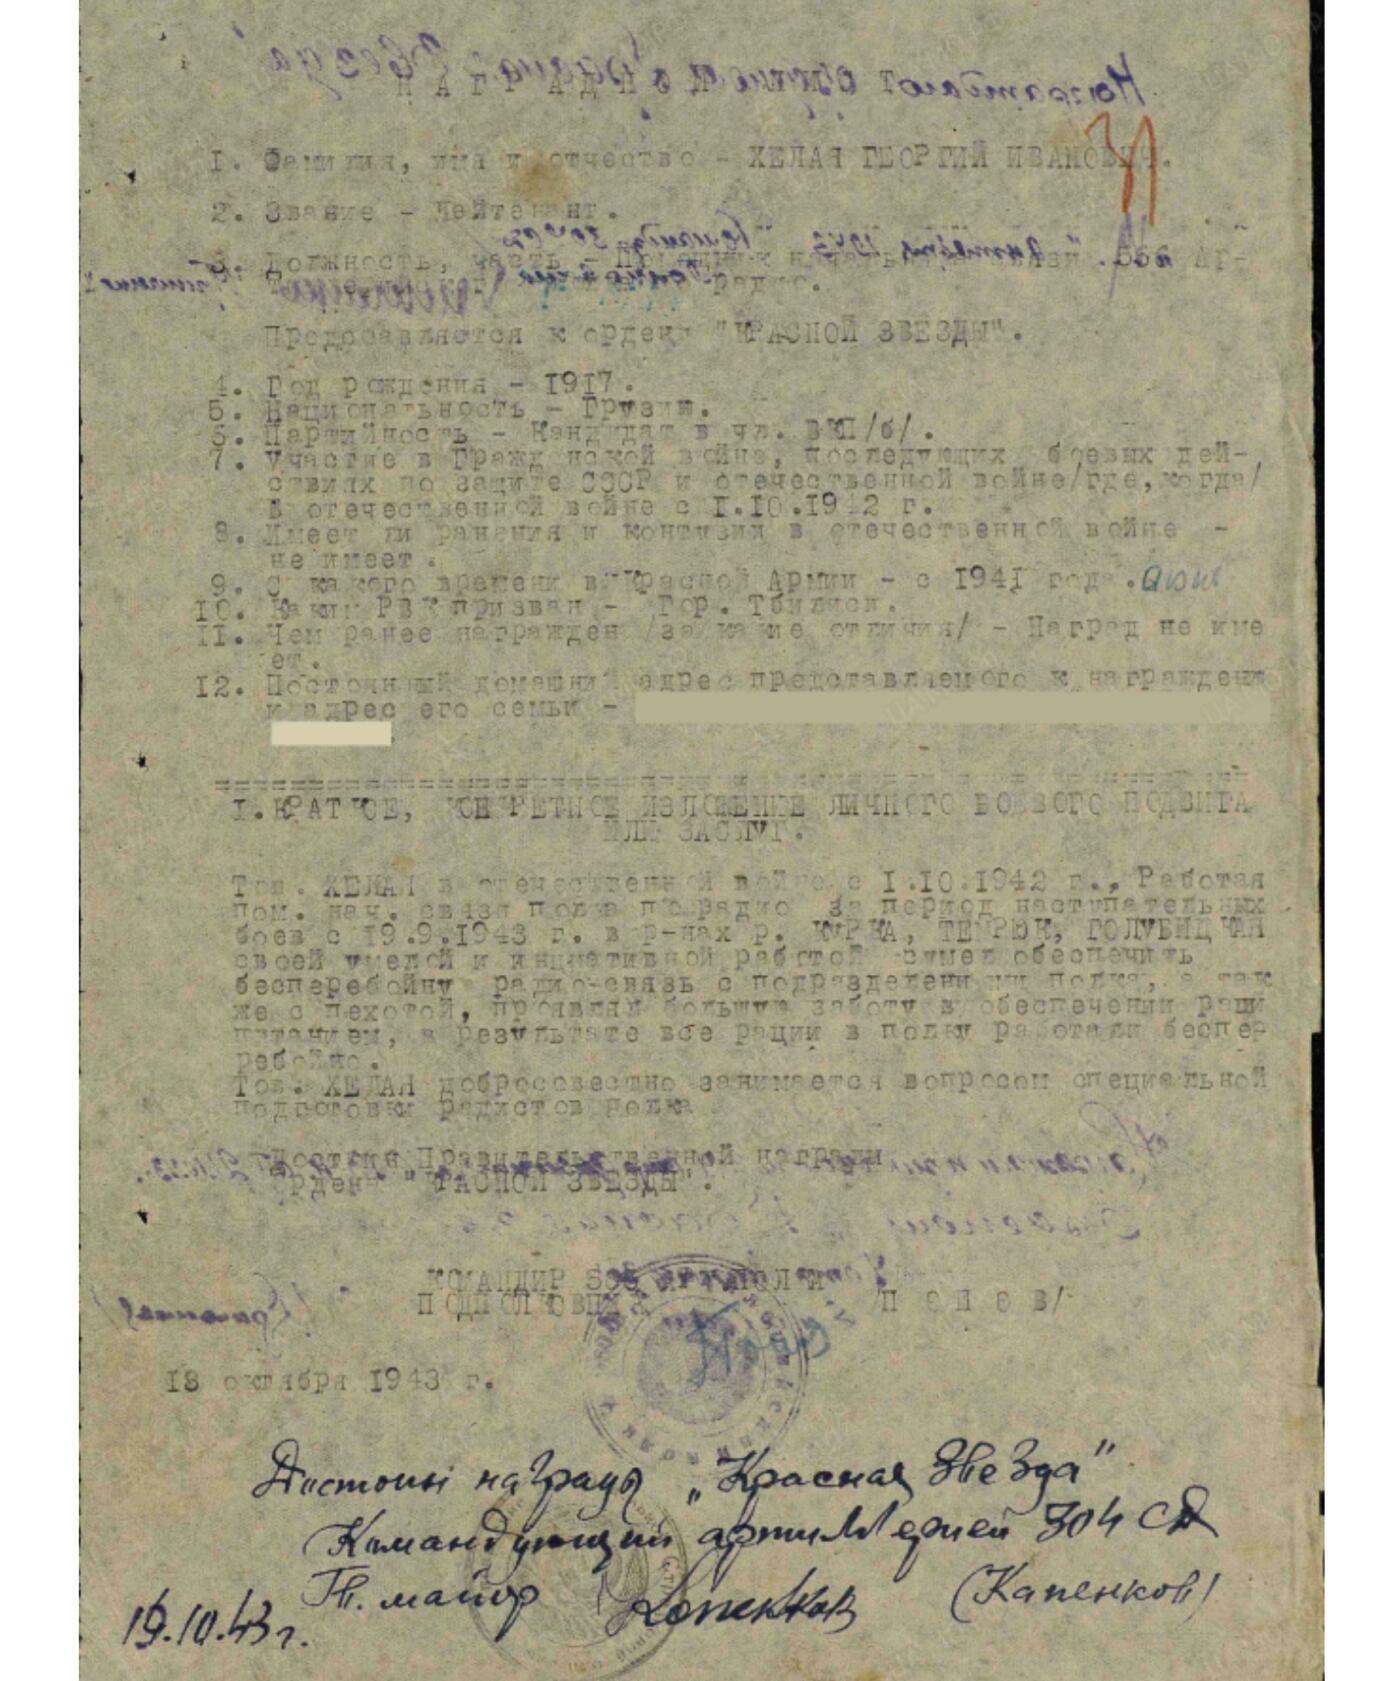 НАГРАДНОЙ ЛИСТ
1. Фамилия, имя и отчество - ХЕЛАЯ ГЕОРГИЙ ИВАНОВИЧ.
2. Звание - Лейтенант.
3. Должность, часть -
Предоставляется к ордену "КРАСНОЙ ЗВЕЗДЫ".
4. Год рождения - 1917.
5. Национальность - Грузин.
6. Партийность - Кандидат в чл. ВКП/б/.
7. Участие в Гражданской войне, последующих боевых дей-
ствиях по защите СССР и отечественной войне/где,когда/
В отечественной войне с 1.10.1942 г.
8. Имеет ли ранения и контузии в отечественной войне -
не имеет.
9. С какого времени в Красной Армии - с 1941 года.
10. Каким РВК призван - Гор. Тбилиси.
11. Чем ранее награжден /за какие отличия/ - Наград не име
ет.
12. Постоянный домашний адрес представляемого к награждению
и адрес его семьи -
1. КРАТКОЕ, КОНКРЕТНОЕ ИЗЛОЖЕНИЕ ЛИЧНОГО БОЕВОГО ПОДВИГА
ИЛИ ЗАСЛУГ.
Тов. ХЕЛАЯ в отечественной войне с 1.10.1942 г., Работая
пом. нач. связи полка по радио за период наступательных
боев с 19.9.1943 г. в р-нах р. КУРКА, ТЕМРЮК, ГОЛУБИЦКАЯ
своей умелой и инциативной работой сумел обеспечить
бесперебойную радио-связь с подразделениями полка, а так
же с пехотой, проявлял большую заботу в обеспечении раций
питанием, в результате все рации в полку работали беспер
ребойно.
Тов. ХЕЛАЯ добросовестно занимается вопросом специальной
подготовки радистов полка
Достоин Правительственной награды
Ордена "КРАСНОЙ ЗВЕЗДЫ".
КОМАНДИР АРТПОЛКА
ПОДПОЛКОВНИК /
18 октября 1943 г.
Достоин награды „Красная Звезда"
Командующий артиллерией 304 СД
Гв. майор Капенков (Капенков)
19.10.43 г.